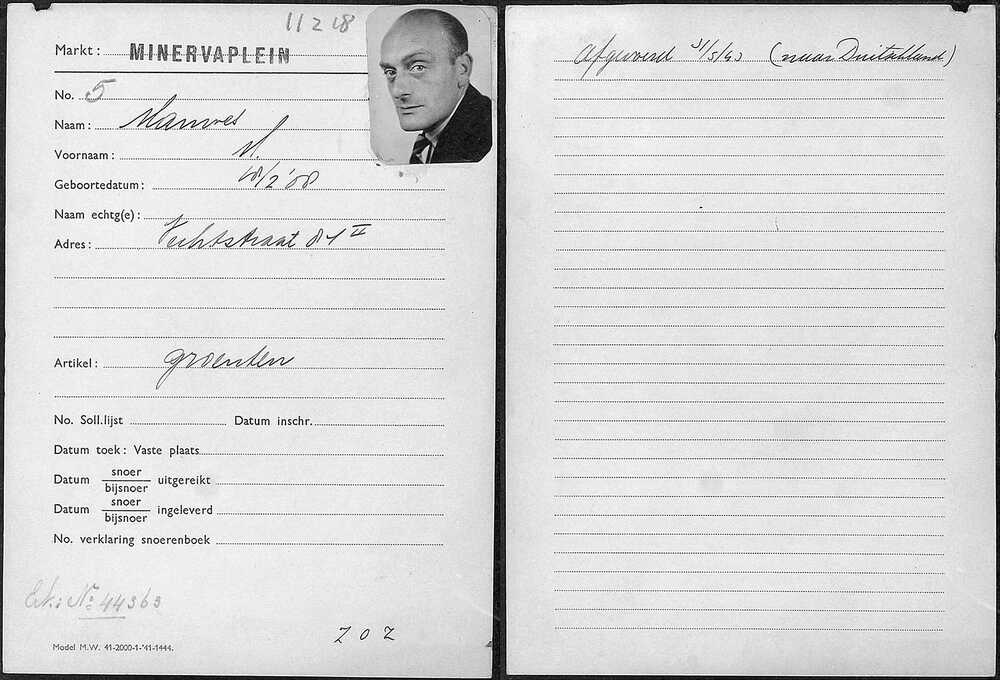 11 2 18
Markt: MINERVAPLEIN
No. 5
Naam:
Voornaam: M.
Geboortedatum: /2 '08
Naam echtg(e):
Adres: Vechtstraat 81 II
Artikel: groenten
No. Soll.lijst Datum inschr.
Datum toek: Vaste plaats
Datum snoer/bijsnoer uitgereikt
Datum snoer/bijsnoer ingeleverd
No. verklaring snoerenboek
No 44363
Z O Z
Model M.W. 41-2000-1-'41-1444.
Afgevoerd 31/5/43 (naar Duitschland)